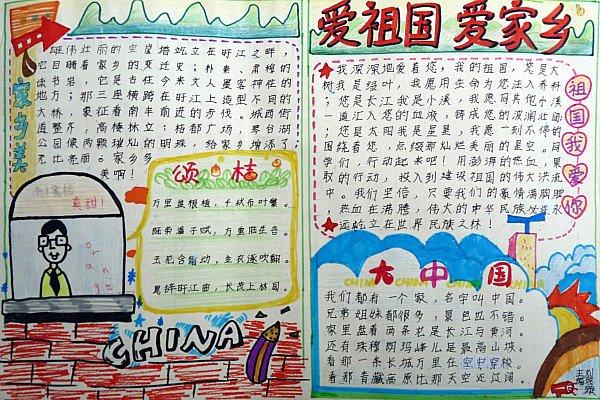 家乡美
雄伟壮丽的宝塔屹立在旴江之畔，
它目睹着家乡的变迁史；朴素、肃穆的
读书岩，它是古往今来文人墨客神往的
地方；那三座横跨在旴江上造型不同的
大桥，象征着南丰前进的步伐。城西街
道整齐，高楼林立；桔都广场、琴台湖
公园像两颗璀灿的明珠，给家乡增添了
无比亮丽。家乡多
美啊！
南丰蜜桔
真甜！
orange
颂桔
万里盘根植，千秋布叶繁。
既荣潘子赋，方重陆生言。
玉花含霜动，金衣逐吹翻。
CHINA
爱祖国 爱家乡
我深深地爱着您，我的祖国，您是大
树我是绿叶，我愿用生命为您注入养料
；您是长江我是小溪，我愿用片片小溪
一道汇入您的血液，铸成您的波澜壮阔
；您是太阳我是星星，我愿一刻不停的
围绕着您，点缀那灿烂美丽的星空。同
学们，行动起来吧！用澎湃的热血，果
敢的行动，投入到建设祖国的伟大洪流
中。我们坚信，只要我们的豪情满胸膛
，热血在沸腾，伟大的中华民族必将永
远屹立在世界民族之林！
祖国我爱你
大中国
CHINA
我们都有一个家，名字叫中国。
兄弟姐妹都很多，景色也不错。
家里盘着两条龙是长江与黄河。
还有珠穆朗玛峰儿是最高山坡。
看那一条长城万里在空中穿梭。
看那青藏高原比那天空还辽阔。